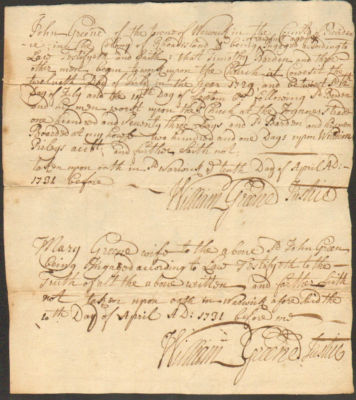 John Greene of the Town of Warwick in the County Providen
ce in the Colony of Rhodisland &c being Ingaged according to
Law Testifyeth and saith that Timothy Barden and three
other men began work upon the Church at Coweset the
twelueth Day of in the year 1729 and betwext that
Day of July and the 19th Day of following sd Barden
and his men work upon the Church at the Trynnes Head
one hundred and Seventy three Days and sd Barden and
Boarded at my house two hundred and one Days upon
Pickeys acctt and further saith not
taken upon oath in sd Warwick ye tenth Day of April AD:
1731 before William Greene Justice
Mary Greene wife to the above sd John Green
being Ingaged according to Law Testifyeth to the
Truth of all the above written and farther saith
not taken upon oath in Warwick aforesaid the
10th Day of April AD: 1731 before me
William Greene Justice